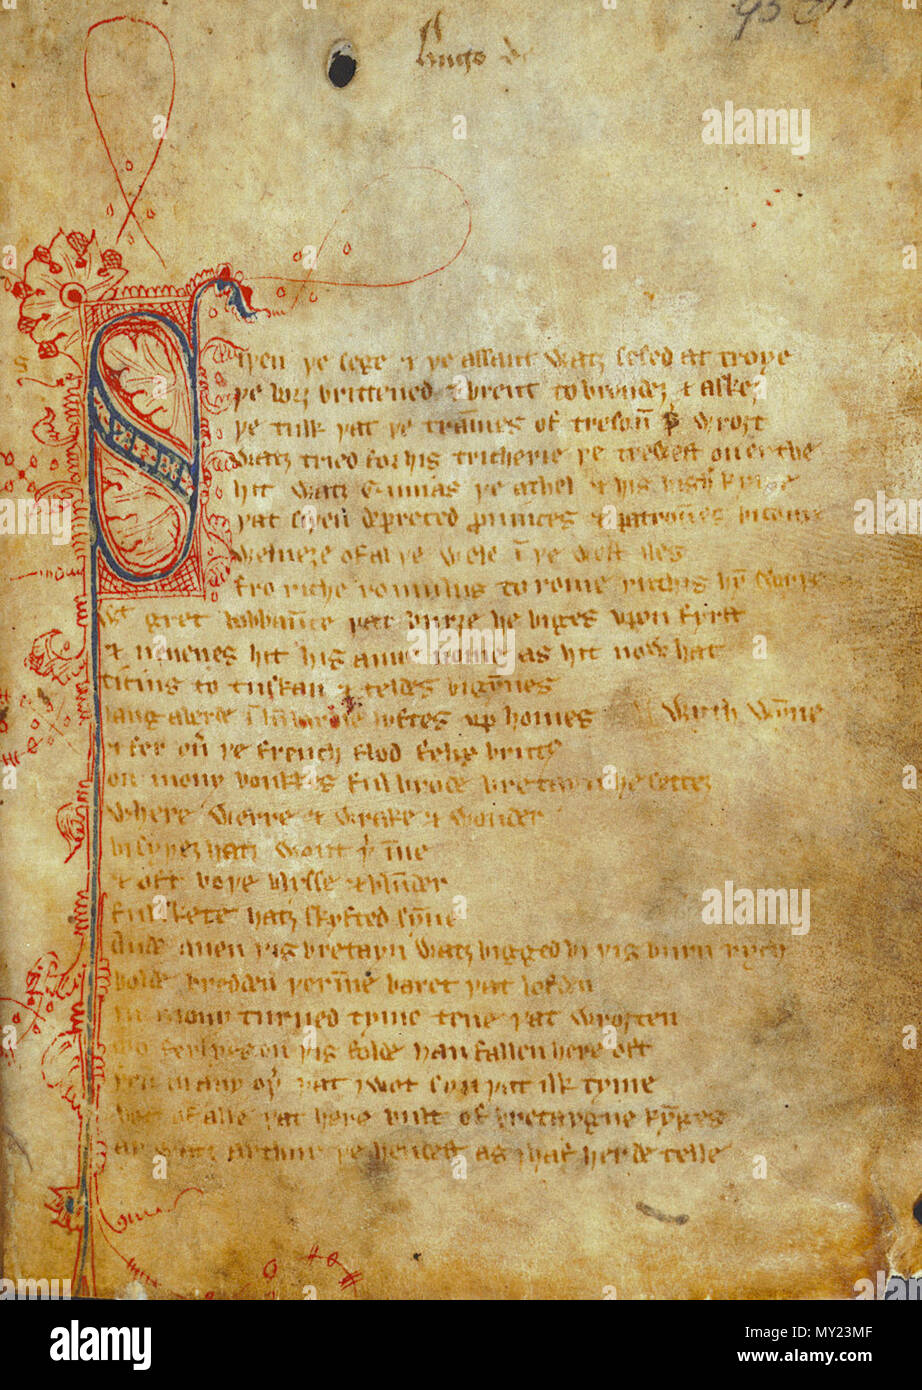 Hugo de
Siþen þe sege & þe assaut watz sesed at troye
þe borȝ brittened & brent to brondez & askez
þe tulk þat þe trāmes of tresoū þ̛ wroȝt
watz tried for his tricherie þe trewest on erthe
hit watz Ennias þe athel & his highe kynde
þat siþen depreced prouinces & patroūes bicome
welneȝe of al þe wele ī þe west iles
fro riche romulus to rome ricchis hȳ swyþe
wᵗ gret bobbaūce þat burȝe he biges vpon fyrst
& neuenes hit his aune nome as hit now hat
ticius to tuskan & teldes bigȳnes
langaberde ī lumbardie lyftes vp homes wyth wȳne
& fer oư þe french flod felix brutꝰ
on mony bonkkes ful brode bretayn he settez
where werre & wrake & wonder
bi syþez hatz wont þ̛īne
& oft boþe blysse & blūder
ful skete hatz skyfted sȳne
Ande quen þis bretayn watz bigged bi þis burn rych
bolde bredden þerīne baret þat lofden
in mony turned tyme tene þat wroȝten
mo ferlyes on þis folde han fallen here oft
þen in any oþ̛ þat I wot syn þat ilk tyme
bot of alle þat here bult of bretaygne kȳges
ay watz arthur þe hendest as I haf herde telle
alamy
alamy
alamy
alamy
Image ID: MY23MF
www.alamy.com